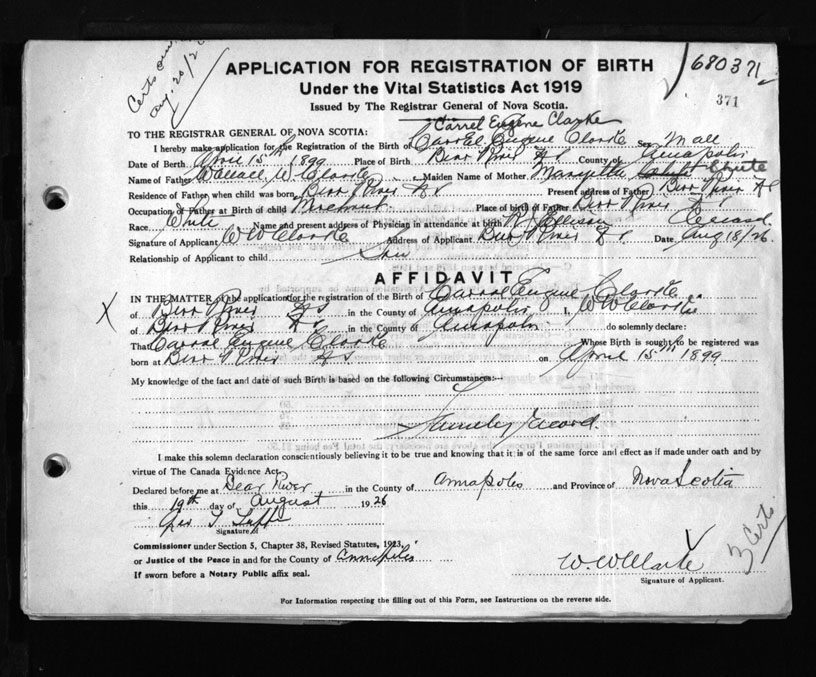 Certs
Aug. 20/2
680371
371
APPLICATION FOR REGISTRATION OF BIRTH
Under the Vital Statistics Act 1919
Issued by The Registrar General of Nova Scotia.
Carrel Eugene Clarke
TO THE REGISTRAR GENERAL OF NOVA SCOTIA:
I hereby make application for the Registration of the Birth of Carrol Eugene Clarke Sex Male
Date of Birth April 15th 1899 Place of Birth Bear River N S County of Annapolis
Name of Father Wallace W Clarke Maiden Name of Mother Chute
Residence of Father when child was born Bear River N S Present address of Father Bear River N S
Occupation of Father at Birth of child Place of birth of Father Bear River N S
Race White Name and present address of Physician in attendance at birth R J Ellison
Signature of Applicant W W Clarke Address of Applicant Bear River N S Date Aug 18/26
Relationship of Applicant to child Son
AFFIDAVIT
IN THE MATTER of the application for the registration of the Birth of Carrol Eugene Clarke
X of Bear River N S in the County of Annapolis I, W W Clarke
of Bear River N S in the County of Annapolis do solemnly declare:
That Carrol Eugene Clarke Whose Birth is sought to be registered was
born at Bear River N S on April 15th 1899
My knowledge of the fact and date of such Birth is based on the following Circumstances:—
Family record
I make this solemn declaration conscientiously believing it to be true and knowing that it is of the same force and effect as if made under oath and by
virtue of The Canada Evidence Act.
Declared before me at Bear River in the County of Annapolis and Province of Nova Scotia
this 19th day of August 1926
Geo T
Signature of
Commissioner under Section 5, Chapter 38, Revised Statutes, 1923,
or Justice of the Peace in and for the County of Annapolis
If sworn before a Notary Public affix seal.
W. W Clarke
Signature of Applicant.
3 Certs.
For Information respecting the filling out of this Form, see Instructions on the reverse side.